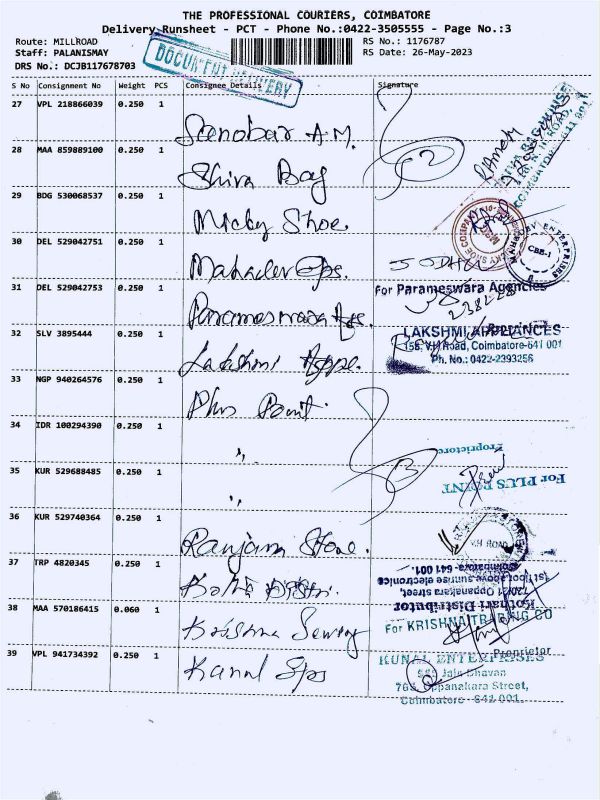 THE PROFESSIONAL COURIERS, COIMBATORE
Delivery Runsheet - PCT - Phone No.:0422-3505555 - Page No.:3
Route: MILLROAD
RS No.: 1176787
Staff: PALANISMAY
RS Date: 26-May-2023
DRS No.: DCJB117678703
DOCUMENT DELIVERY
S No Consignment No Weight PCS Consignee Details Signature
27 VPL 218866039 0.250 1 Sanobar A.M.
28 MAA 859889100 0.250 1 Shiva Bag
29 BDG 530068537 0.250 1 Micky Shoe.
30 DEL 529042751 0.250 1 Mahadev Eps.
31 DEL 529042753 0.250 1 Parameswara Ags.
32 SLV 3895444 0.250 1 Lakshmi Appe.
33 NGP 940264576 0.250 1 Plus Point.
34 IDR 100294390 0.250 1 "
35 KUR 529688485 0.250 1 "
36 KUR 529740364 0.250 1 Ranjana Store.
37 TRP 4820345 0.250 1 Kothari Distri.
38 MAA 570186415 0.060 1 Krishna Sewing
39 VPL 941734392 0.250 1 Kunal Eps
2
Ramesh
ENTERPRISES
CBE-1
For Parameswara Agencies
LAKSHMI APPLIANCES
156, V.H Road, Coimbatore-641 001
Ph. No.: 0422-2393256
3
For PLUS POINT
Proprietor
V.H ROAD
Kothari Distributor
Oppanakara street,
1st floor, above sunrise electronics
Coimbatore- 641 001.
For KRISHNA TRADING CO
Proprietor
KUNAL ENTERPRISES
Jain Bhavan
Oppanakara Street,
Coimbatore - 641 001.